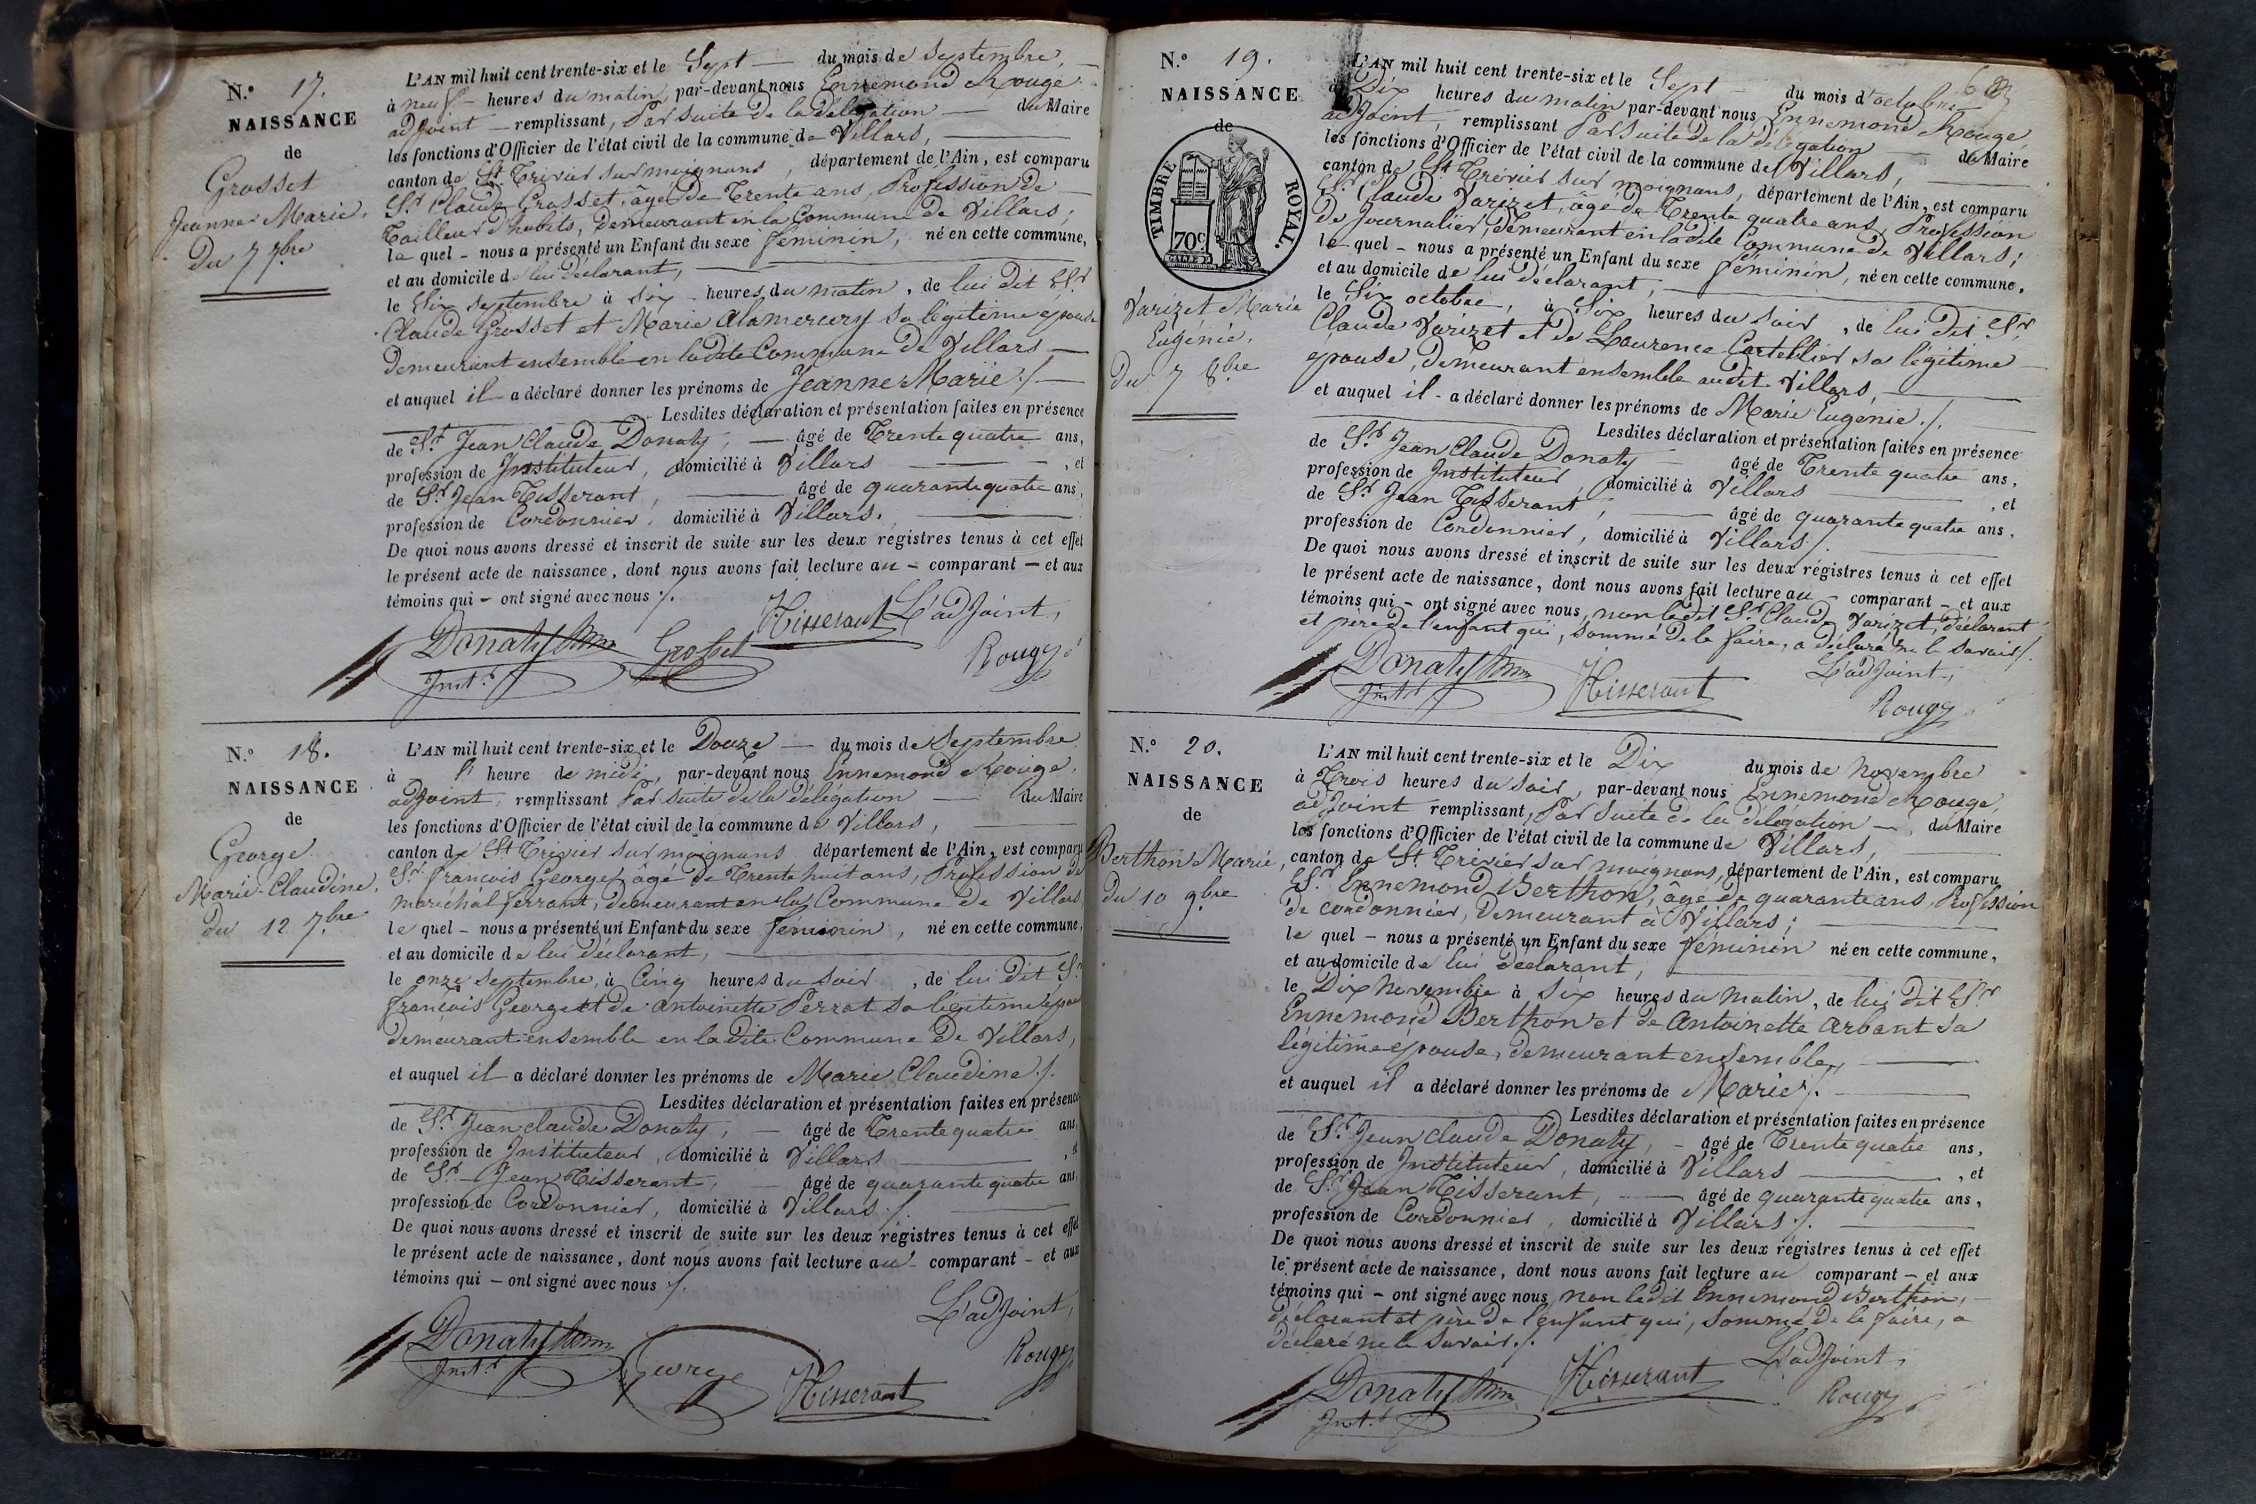 N.° 17.
NAISSANCE
de
Grosset
Jeanne Marie.
du 7 7.bre
L'AN mil huit cent trente-six et le Sept du mois de Septembre,
à neuf heures du matin, par-devant nous Ennemond Rouge
adjoint remplissant, Par suite de la délégation du Maire
les fonctions d'Officier de l'état civil de la commune de Villars,
canton de St Trivier sur moignans, département de l'Ain, est comparu
Sr. Claude Grosset, âgé de Trente ans, Profession de
Tailleur d'habits, Demeurant en la Commune de Villars;
le quel – nous a présenté un Enfant du sexe féminin, né en cette commune,
et au domicile de lui déclarant,
le Six septembre à six heures du matin, de lui dit Sr
Claude Grosset et Marie Alamercery sa légitime épouse
demeurant ensemble en ladite Commune de Villars
et auquel il a déclaré donner les prénoms de Jeanne Marie ./.
Lesdites déclaration et présentation faites en présence
de Sr. Jean Claude Donaty, âgé de Trente quatre ans,
profession de Instituteur, domicilié à Villars, et
de Sr. Jean Tisserant, âgé de quarante quatre ans,
profession de Cordonnier, domicilié à Villars.
De quoi nous avons dressé et inscrit de suite sur les deux régistres tenus à cet effet
le présent acte de naissance, dont nous avons fait lecture au – comparant – et aux
témoins qui – ont signé avec nous ./.
Donaty
Inst.r
Grosset
Tisserant
L'adjoint,
Rouge
N.° 18.
NAISSANCE
de
George
Marie-Claudine.
du 12 7.bre
L'AN mil huit cent trente-six et le Douze du mois de Septembre
à l' heure de midi, par-devant nous Ennemond Rouge,
adjoint, remplissant Par suite de la délégation du Maire
les fonctions d'Officier de l'état civil de la commune de Villars,
canton de St Trivier sur moignans département de l'Ain, est comparu
Sr. françois George, âgé de Trente huit ans, Profession de
maréchal ferrant, demeurant en la Commune de Villars
le quel – nous a présenté un Enfant du sexe féminin, né en cette commune,
et au domicile de lui déclarant,
le onze septembre, à Cinq heures du soir, de lui dit Sr.
françois George et de antoinette Perrat sa légitime épouse
demeurant ensemble en la dite Commune de Villars,
et auquel il a déclaré donner les prénoms de Marie Claudine ./.
Lesdites déclaration et présentation faites en présence
de Sr. Jean claude Donaty, âgé de Trente quatre ans
profession de Instituteur, domicilié à Villars, et
de Sr. Jean Tisserant, âgé de quarante quatre ans,
profession de Cordonnier, domicilié à Villars ./.
De quoi nous avons dressé et inscrit de suite sur les deux régistres tenus à cet effet
le présent acte de naissance, dont nous avons fait lecture au – comparant – et aux
témoins qui – ont signé avec nous ./.
Donaty
Inst.r
George
Tisserant
L'adjoint,
Rouge
N.° 19.
NAISSANCE
de
TIMBRE ROYAL.
70c
Varizet Marie
Eugénie.
du 7 8.bre
L'AN mil huit cent trente-six et le Sept du mois d'octobre
à Dix heures du matin par-devant nous Ennemond Rouge,
adjoint, remplissant Par suite de la délégation du Maire
les fonctions d'Officier de l'état civil de la commune de Villars,
canton de St Trivier sur moignans, département de l'Ain, est comparu
Sr. Claude Varizet, âgé de Trente quatre ans, Profession
de Journalier, Demeurant en ladite Commune de Villars;
le quel – nous a présenté un Enfant du sexe féminin, né en cette commune,
et au domicile de lui déclarant,
le Six octobre, à Six heures du soir, de lui dit Sr.
Claude Varizet et de Laurence Cartellier sa légitime
épouse, demeurant ensemble audit Villars,
et auquel il – a déclaré donner les prénoms de Marie Eugénie ./.
Lesdites déclaration et présentation faites en présence
de Sr. Jean Claude Donaty âgé de Trente quatre ans,
profession de Instituteur, domicilié à Villars, et
de Sr. Jean Tisserant, âgé de quarante quatre ans,
profession de Cordonnier, domicilié à Villars ./.
De quoi nous avons dressé et inscrit de suite sur les deux régistres tenus à cet effet
le présent acte de naissance, dont nous avons fait lecture au – comparant – et aux
témoins qui – ont signé avec nous, non ledit Sr. Claude Varizet, déclarant
et père de l'enfant qui, sommé de le faire, a déclaré ne le savoir ./.
Donaty
Inst.r
Tisserant
L'adjoint,
Rouge
N.° 20.
NAISSANCE
de
Berthon Marie,
du 10 9.bre
L'AN mil huit cent trente-six et le Dix du mois de Novembre
à Trois heures du soir, par-devant nous Ennemond Rouge,
adjoint remplissant, Par suite de la délégation du Maire
les fonctions d'Officier de l'état civil de la commune de Villars,
canton de St. Trivier sur moignans, département de l'Ain, est comparu
Sr. Ennemond Berthon, âgé de quarante ans, Profession
de cordonnier, Demeurant à Villars;
le quel – nous a présenté un Enfant du sexe féminin né en cette commune,
et au domicile de lui déclarant,
le Dix Novembre à Six heures du matin, de lui dit Sr.
Ennemond Berthon et de Antoinette Arbant sa
légitime épouse, demeurant ensemble,
et auquel il a déclaré donner les prénoms de Marie ./.
Lesdites déclaration et présentation faites en présence
de Sr. Jean claude Donaty, – âgé de Trente quatre ans,
profession de Instituteur, domicilié à Villars, et
de Sr. Jean Tisserant, âgé de quarante quatre ans,
profession de Cordonnier, domicilié à Villars ./.
De quoi nous avons dressé et inscrit de suite sur les deux régistres tenus à cet effet
le présent acte de naissance, dont nous avons fait lecture au comparant – et aux
témoins qui – ont signé avec nous, non ledit Ennemond Berthon,
déclarant et père de l'enfant qui, sommé de le faire, a
déclaré ne le savoir ./.
Donaty
Inst.r
Tisserant
L'adjoint,
Rouge